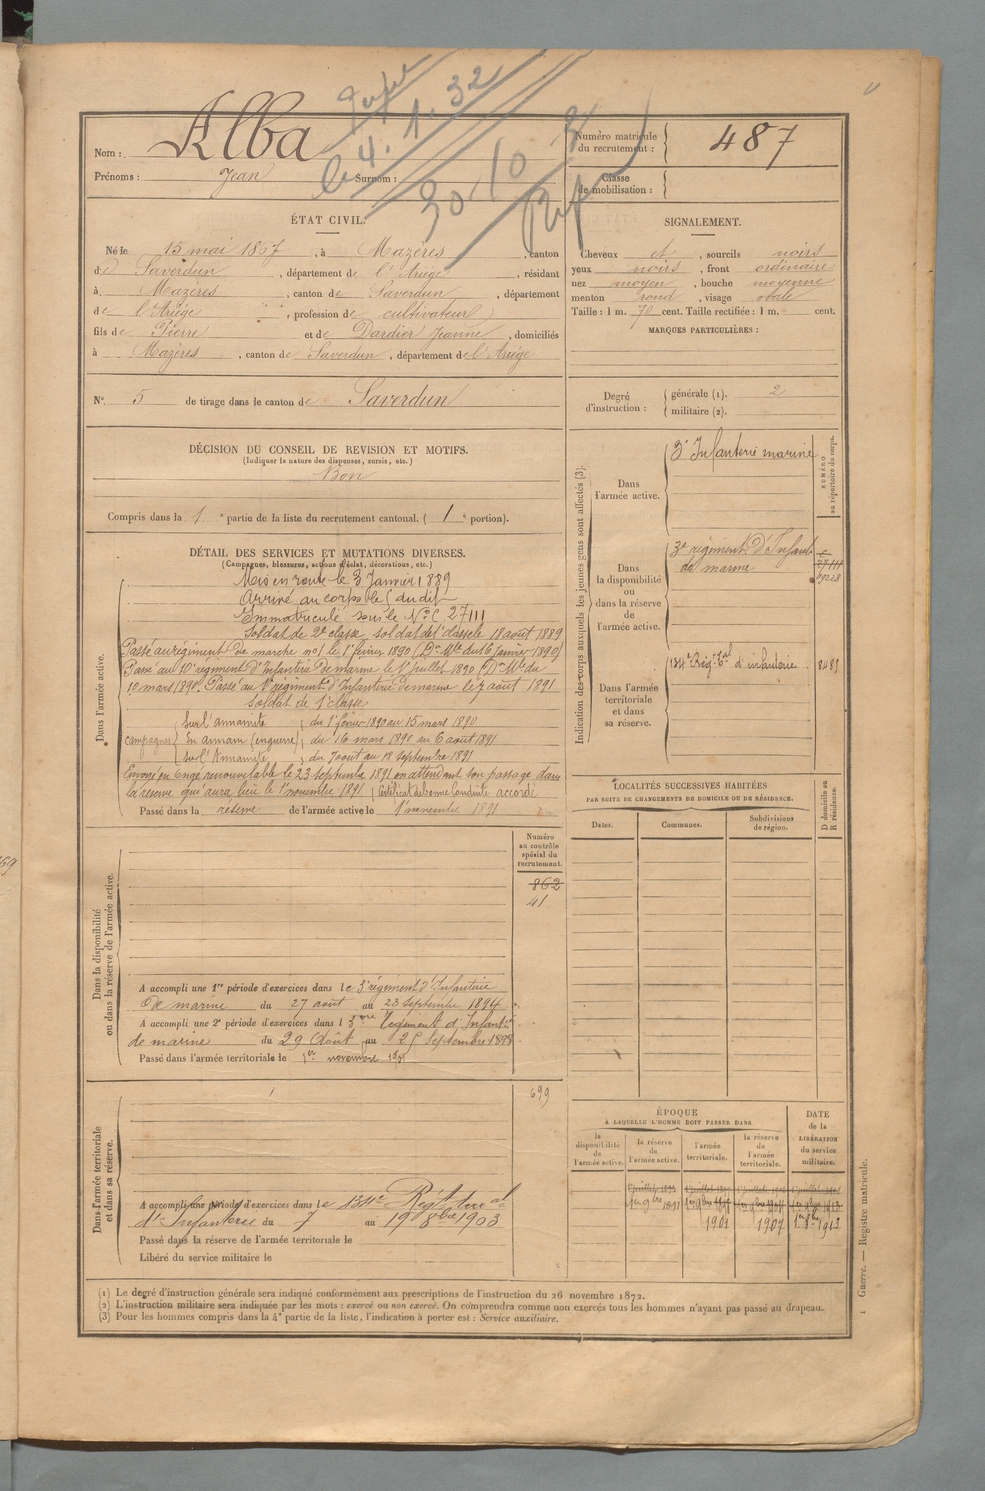 Nom : Alba
Numéro matricule du recrutement : 487
Prénoms : Jean Surnom :
le 4. 1. 32
30 10
Classe de mobilisation :
ÉTAT CIVIL.
Né le 15 mai 1867, à Mazères, canton
de Saverdun, département de l'Ariège, résidant
à Mazères, canton de Saverdun, département
de l'Ariège, profession de cultivateur
fils de Pierre et de Dardier Jeanne, domiciliés
à Mazères, canton de Saverdun, département de l'Ariège
N° 5 de tirage dans le canton de Saverdun
SIGNALEMENT.
Cheveux et, sourcils noirs
yeux noirs, front ordinaire
nez moyen, bouche moyenne
menton rond, visage ovale
Taille : 1 m. 70 cent. Taille rectifiée : 1 m. cent.
MARQUES PARTICULIÈRES :
Degré d'instruction : générale (1). 2
militaire (2).
DÉCISION DU CONSEIL DE REVISION ET MOTIFS.
(Indiquer la nature des dispenses, sursis, etc.)
Bon
Compris dans la 1e partie de la liste du recrutement cantonal. (1e portion).
DÉTAIL DES SERVICES ET MUTATIONS DIVERSES.
(Campagnes, blessures, actions d'éclat, décorations, etc.)
Dans l'armée active.
Mis en route le 3 Janvier 1889
Arrivé au corps le dudit
Immatriculé sous le N° 2711
Soldat de 2e classe soldat de 1e classe le 18 août 1889
Passé au régiment de marche no 1 le 1er février 1890 (Don Mlle du 16 janvier 1890)
Passé au 10e régiment d'Infanterie de marine le 1er juillet 1890 (Don Mlle du
10 mars 1890. Passé au 1er régiment d'Infanterie de marine le 7 août 1891
Soldat de 1e classe
campagnes
Sur l'annamite, du 1er février 1890 au 15 mars 1890
En annam (en guerre), du 16 mars 1890 au 6 août 1891
sur l'Annamite, du 7 août au 18 septembre 1891
Envoyé en congé renouvelable le 23 septembre 1891 en attendant son passage dans
la réserve que aura lieu le 1er novembre 1891, Certificat de bonne conduite accordé
Passé dans la réserve de l'armée active le 1er novembre 1891
Indication des corps auxquels les jeunes gens sont affectés (3).
NUMÉRO au répertoire du corps.
Dans l'armée active.
3e Infanterie marine
Dans la disponibilité ou dans la réserve de l'armée active.
3e régiment d'Infant.
de marine
Dans l'armée territoriale et dans sa réserve.
134e Régt Tal d'infanterie
LOCALITÉS SUCCESSIVES HABITÉES
PAR SUITE DE CHANGEMENTS DE DOMICILE OU DE RÉSIDENCE.
D domicile ou R résidence.
Dates. Communes. Subdivisions de région.
Dans la disponibilité ou dans la réserve de l'armée active.
Numéro au contrôle spécial du recrutement.
862
41
A accompli une 1re période d'exercices dans le 3e régiment d'Infanterie
de marine du 27 août au 23 septembre 1894
A accompli une 2e période d'exercices dans le 3ème Régiment d'Infantie
de marine du 29 Août au 25 Septembre 1898
Passé dans l'armée territoriale le 1er novembre 1901
Dans l'armée territoriale et dans sa réserve.
699
A accompli une période d'exercices dans le 134e Régt territal
d'Infanterie du 7 au 19 8bre 1903
Passé dans la réserve de l'armée territoriale le
Libéré du service militaire le
ÉPOQUE
À LAQUELLE L'HOMME DOIT PASSER DANS
la disponibilité de l'armée active.
la réserve de l'armée active.
l'armée territoriale.
la réserve de l'armée territoriale.
DATE de la LIBÉRATION du service militaire.
1er 9bre 1891
1901
1907
1er 8bre 1913
(1) Le degré d'instruction générale sera indiqué conformément aux prescriptions de l'instruction du 26 novembre 1872.
(2) L'instruction militaire sera indiquée par les mots : exercé ou non exercé. On comprendra comme non exercés tous les hommes n'ayant pas passé au drapeau.
(3) Pour les hommes compris dans la 4e partie de la liste, l'indication à porter est : Service auxiliaire.
1 Guerre. — Registre matricule.